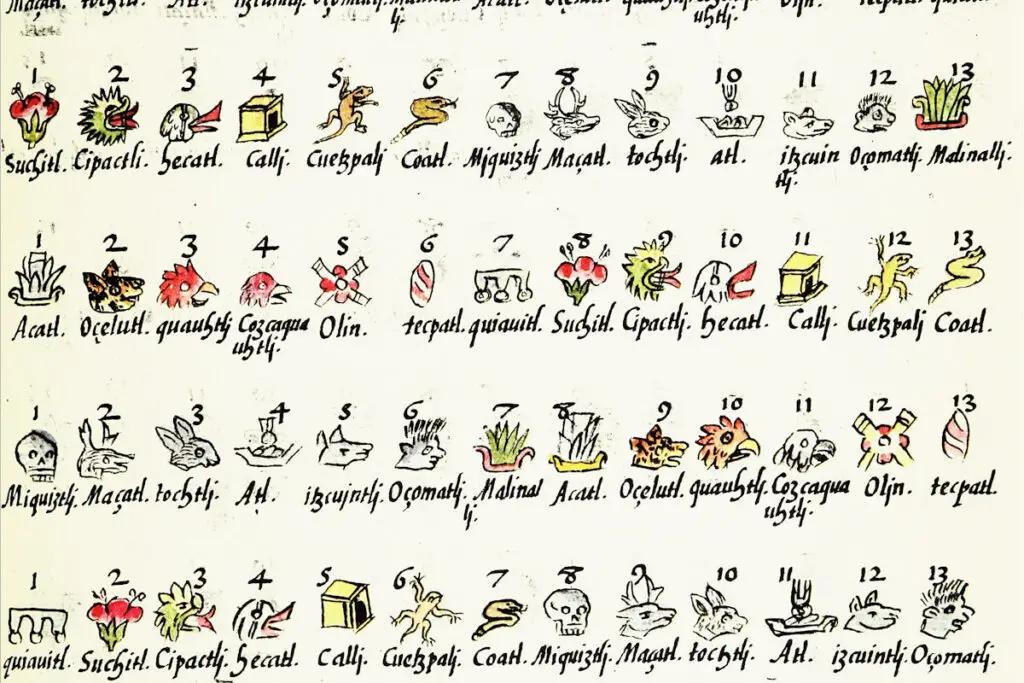 1 2 3 4 5 6 7 8 9 10 11 12 13
Suchitl. Cipactlj. hecatl. Callj. Cuetzpalj Coatl. Mjquiztlj Maçatl. tochtlj. atl. itzcuin Oçomatlj. Malinallj.
tlj.
1 2 3 4 5 6 7 8 9 10 11 12 13
Acatl. Oçelutl. quauhtlj Cozcaqua Olin. tecpatl. quiauitl. Suchitl. Cipactlj. hecatl. Callj. Cuetzpalj Coatl.
uhtlj.
1 2 3 4 5 6 7 8 9 10 11 12 13
Mjquiztlj. Maçatl. tochtlj. Atl. itzcujntlj. Oçomatlj. Malinal Acatl. Oçelutl. quauhtlj. Cozcaqua Oljn. tecpatl.
lj. uhtlj.
1 2 3 4 5 6 7 8 9 10 11 12 13
quiauitl. Suchitl. Cipactlj. hecatl. Callj. Cuetzpalj. Coatl. Mjquiztlj. Maçatl. tochtlj. Atl. izcuintlj. Oçomatlj.